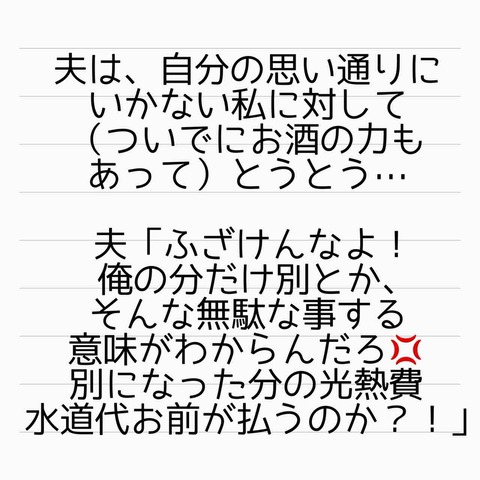 夫は、自分の思い通りに
いかない私に対して
（ついでにお酒の力も
あって）とうとう…
夫「ふざけんなよ！
俺の分だけ別とか、
そんな無駄な事する
意味がわからんだろ💢
別になった分の光熱費
水道代お前が払うのか？！」